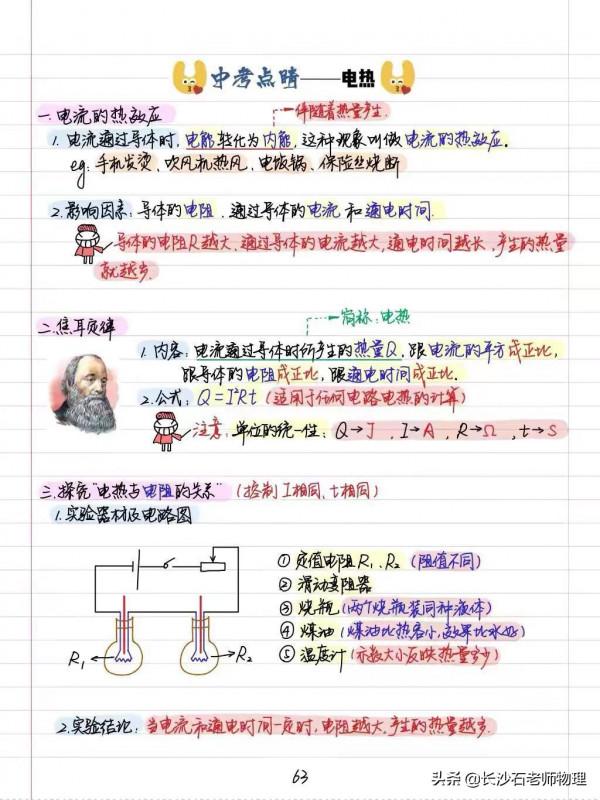 中考点睛——电热
一.电流的热效应
伴随着热量产生.
1.电流通过导体时,电能转化为内能,这种现象叫做电流的热效应.
eg:手机发烫、吹风机热风、电饭锅、保险丝烧断
2.影响因素:导体的电阻、通过导体的电流和通电时间.
导体的电阻R越大、通过导体的电流越大,通电时间越长,产生的热量
就越多.
二.焦耳定律
简称:电热
1.内容:电流通过导体时所产生的热量Q,跟电流的平方成正比,
跟导体的电阻成正比,跟通电时间成正比.
2.公式:Q=I²Rt(适用于任何电路电热的计算)
注意:单位的统一性:Q→J,I→A,R→Ω,t→S
三.探究"电热与电阻的关系"(控制I相同、t相同)
1.实验器材及电路图
①定值电阻R₁、R₂(阻值不同)
②滑动变阻器
③烧瓶(两个烧瓶装同种液体)
④煤油(煤油比热容小,效果比水好)
⑤温度计(示数大小反映热量多少)
R₁
R₂
2.实验结论:当电流和通电时间一定时,电阻越大,产生的热量越多.
63
头条@长沙石老师物理